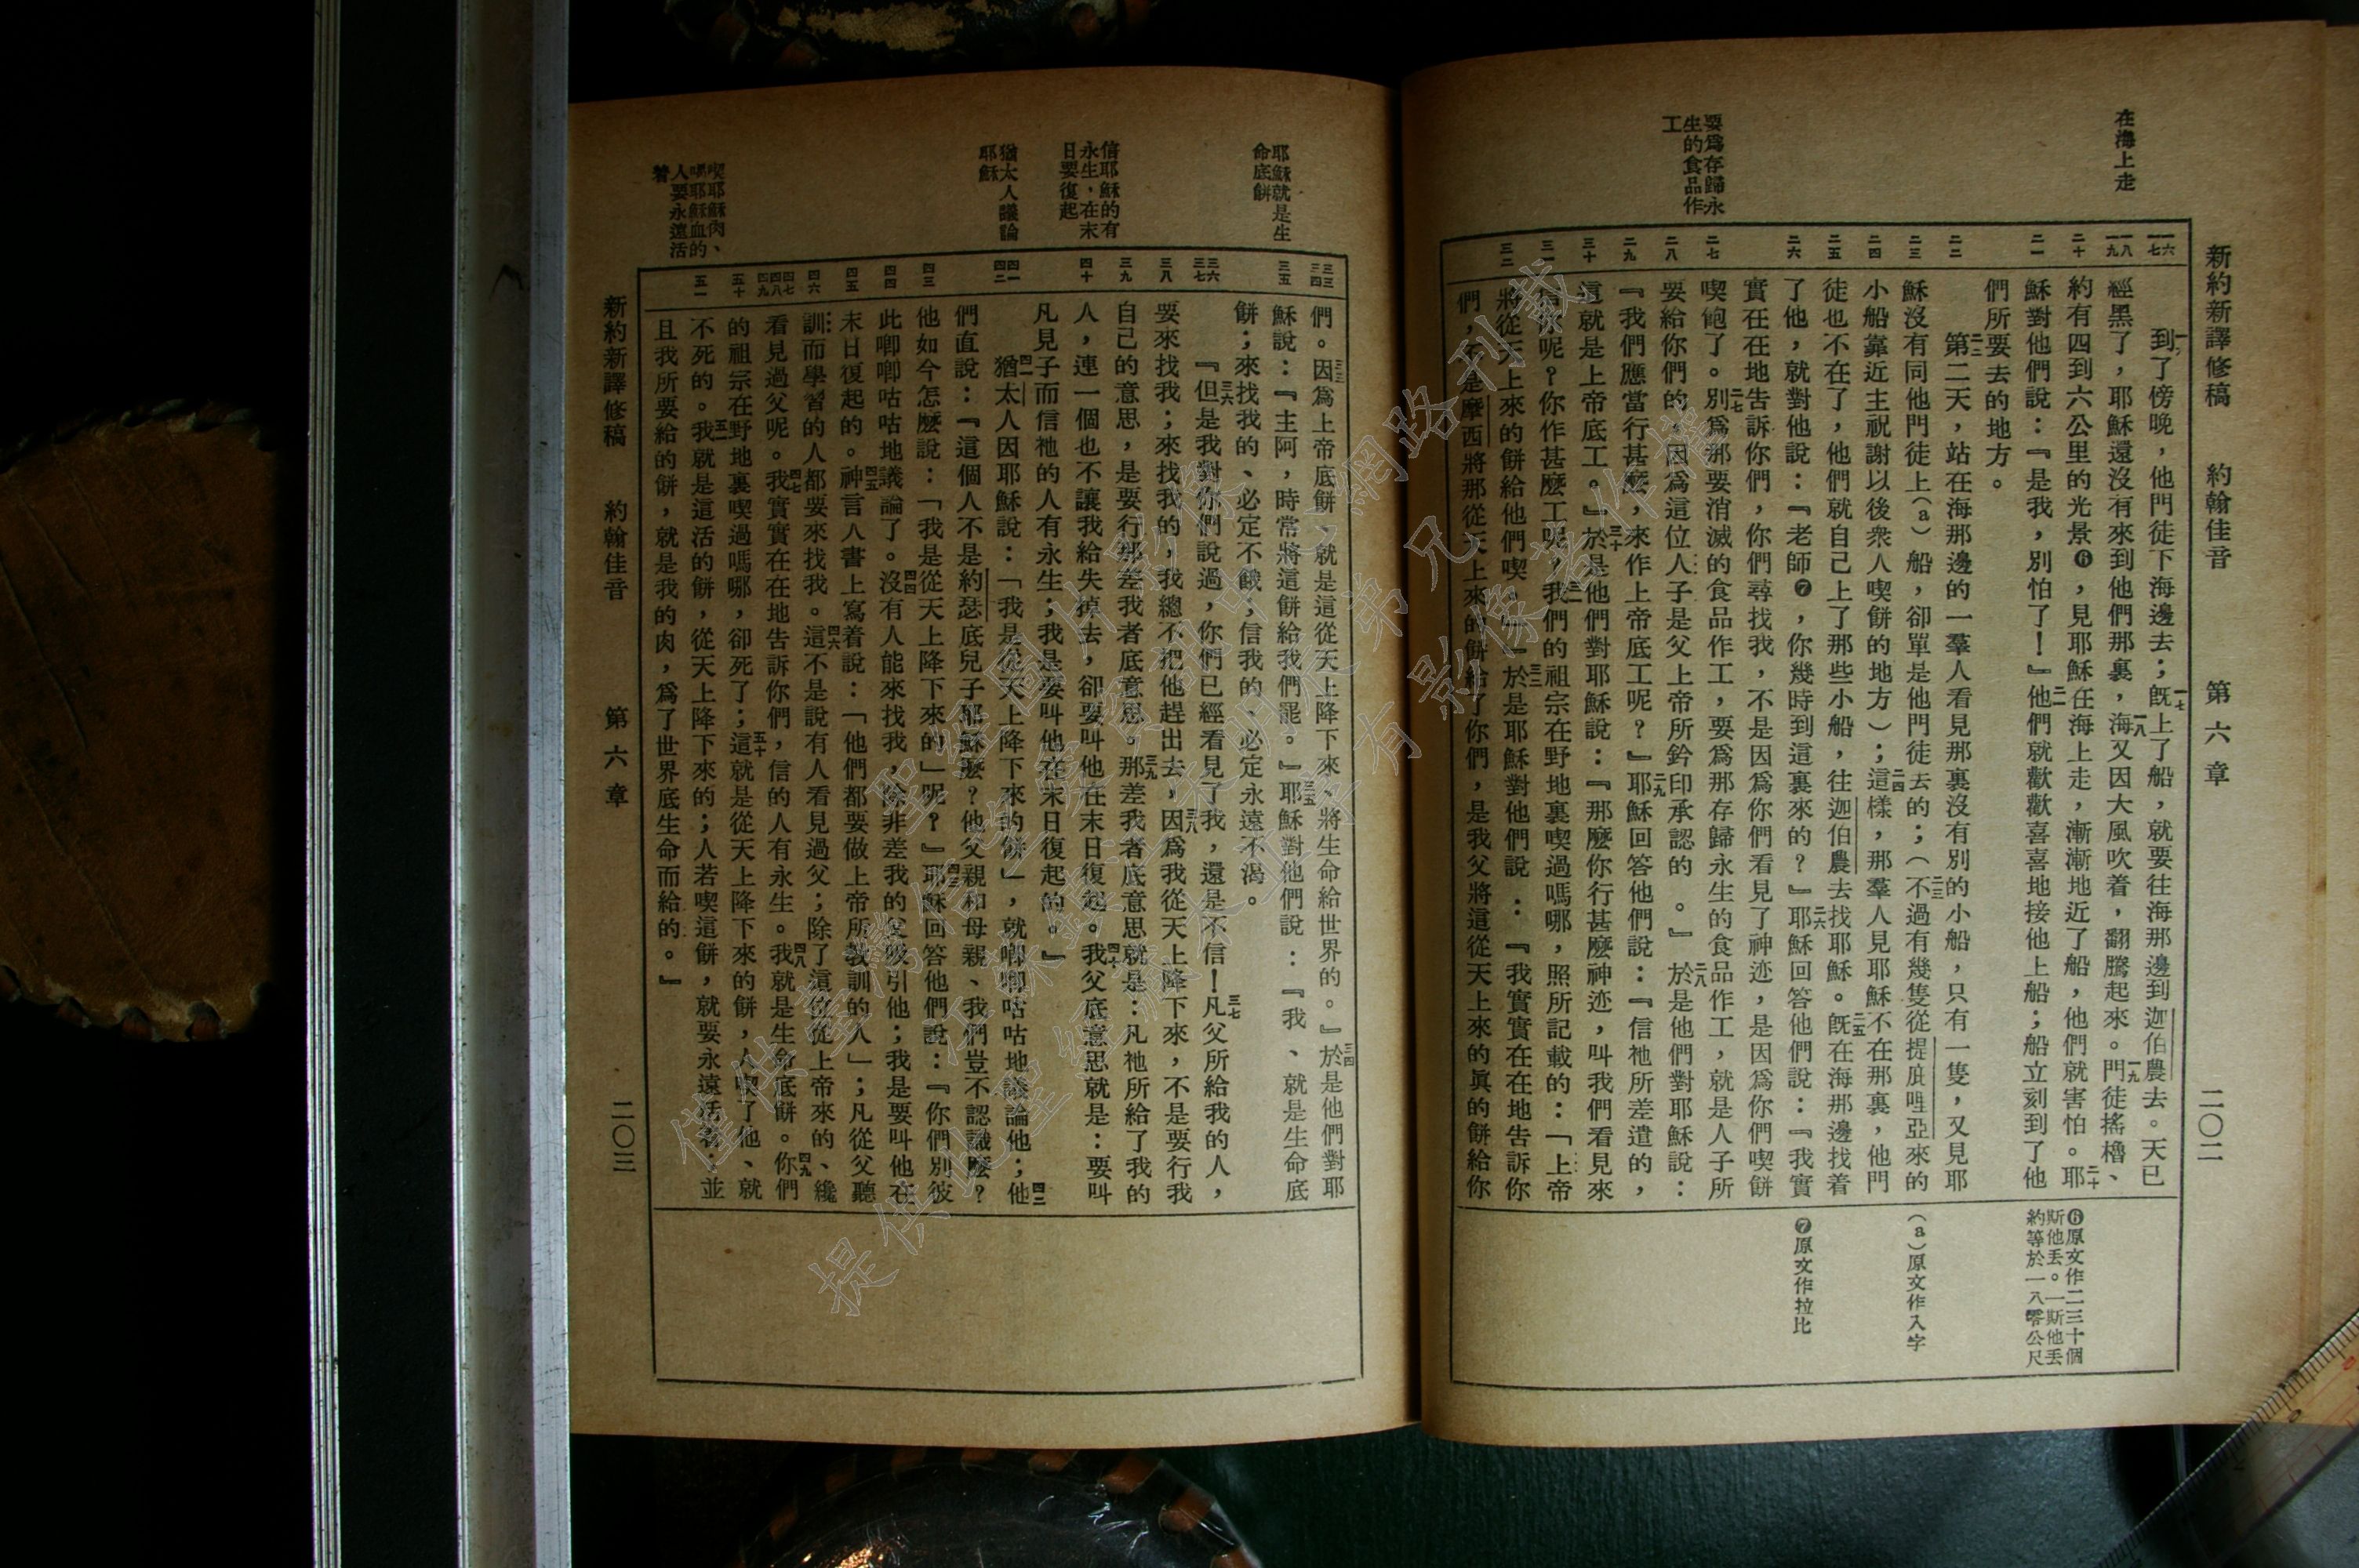 新約新譯修稿 約翰佳音 第六章 二〇二
在海上走
要爲存歸永
生的食品作
工
一六
一七
一八
一九
二十
二一
二二
二三
二四
二五
二六
二七
二八
二九
三十
三一
三二
一六到了傍晚，他門徒下海邊去；一七旣上了船，就要往海那邊到迦伯農去。天已
經黑了，耶穌還沒有來到他們那裏，一八海又因大風吹着，翻騰起來。一九門徒搖櫓、
約有四到六公里的光景❻，見耶穌在海上走，漸漸地近了船，他們就害怕。二十耶
穌對他們說：『是我，別怕了！』二一他們就歡歡喜喜地接他上船；船立刻到了他
們所要去的地方。
二二第二天，站在海那邊的一羣人看見那裏沒有別的小船，只有一隻，又見耶
穌沒有同他門徒上（a）船，卻單是他門徒去的；二三（不過有幾隻從提庇哩亞來的
小船靠近主祝謝以後衆人喫餅的地方）；二四這樣，那羣人見耶穌不在那裏，他門
徒也不在了，他們就自己上了那些小船，往迦伯農去找耶穌。二五旣在海那邊找着
了他，就對他說：『老師❼，你幾時到這裏來的？』二六耶穌回答他們說：『我實
實在在地告訴你們，你們尋找我，不是因爲你們看見了神迹，是因爲你們喫餅
喫飽了。二七別爲那要消滅的食品作工，要爲那存歸永生的食品作工，就是人子所
要給你們的，因爲這位人子是父上帝所鈐印承認的。』二八於是他們對耶穌說：
『我們應當行甚麼，來作上帝底工呢？』二九耶穌回答他們說：『信祂所差遣的，
這就是上帝底工。』三十於是他們對耶穌說：『那麼你行甚麼神迹，叫我們看見來
信你呢？你作甚麼工呢？三一我們的祖宗在野地裏喫過嗎哪，照所記載的：「上帝
將從天上來的餅給他們喫。」』三二於是耶穌對他們說：『我實實在在地告訴你
們，不是摩西將那從天上來的餅給了你們，是我父將這從天上來的眞的餅給你
❻原文作二三十個
斯他丟。一斯他丟
約等於一八零公尺
（a）原文作入字
❼原文作拉比
耶穌就是生
命底餅
信耶穌的有
永生，在末
日要復起
猶太人議論
耶穌
喫耶穌肉、
喝耶穌血的
人要永遠活
着
三三
三四
三五
三六
三七
三八
三九
四十
四一
四二
四三
四四
四五
四六
四七
四八
四九
五十
五一
們。三三因爲上帝底餅、就是這從天上降下來、將生命給世界的。』三四於是他們對耶
穌說：『主阿，時常將這餅給我們罷。』三五耶穌對他們說：『我、就是生命底
餅；來找我的、必定不餓；信我的、必定永遠不渴。
三六『但是我對你們說過，你們已經看見了我，還是不信！三七凡父所給我的人，
要來找我；來找我的，我總不把他趕出去，三八因爲我從天上降下來，不是要行我
自己的意思，是要行那差我者底意思。三九那差我者底意思就是：凡祂所給了我的
人，連一個也不讓我給失掉去，卻要叫他在末日復起。四十我父底意思就是：要叫
凡見子而信祂的人有永生；我是要叫他在末日復起的。』
四一猶太人因耶穌說：「我是從天上降下來的餅」，就唧唧咕咕地議論他；四二他
們直說：『這個人不是約瑟底兒子耶穌麼？他父親和母親、我們豈不認識麼？
他如今怎麼說：「我是從天上降下來的」呢？』四三耶穌回答他們說：『你們別彼
此唧唧咕咕地議論了。四四沒有人能來找我，除非差我的父吸引他；我是要叫他在
末日復起的。四五神言人書上寫着說：「他們都要做上帝所教訓的人」；凡從父聽
訓而學習的人都要來找我。四六這不是說有人看見過父；除了這位從上帝來的、纔
看見過父呢。四七我實實在在地告訴你們，信的人有永生。四八我就是生命底餅。四九你們
的祖宗在野地裏喫過嗎哪，卻死了；五十這就是從天上降下來的餅，人喫了他、就
不死的。五一我就是這活的餅，從天上降下來的；人若喫這餅，就要永遠活着：並
且我所要給的餅，就是我的肉，爲了世界底生命而給的。』
新約新譯修稿 約翰佳音 第六章 二〇三